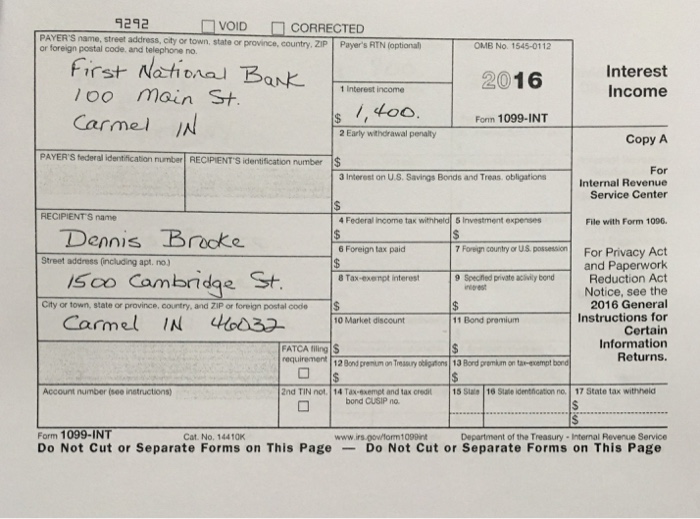 9292 VOID CORRECTED
PAYER'S name, street address, city or town, state or province, country, ZIP
or foreign postal code, and telephone no.
First National Bank
100 Main St.
Carmel IN
Payer's RTN (optional)
OMB No. 1545-0112
2016
Form 1099-INT
Interest
Income
1 Interest income
$ 1,400.
2 Early withdrawal penalty
$
Copy A
PAYER'S federal identification number
RECIPIENT'S identification number
3 Interest on U.S. Savings Bonds and Treas. obligations
$
For
Internal Revenue
Service Center
File with Form 1096.
RECIPIENT'S name
Dennis Brooke
4 Federal income tax withheld
$
5 Investment expenses
$
Street address (including apt. no.)
1500 Cambridge St.
6 Foreign tax paid
$
7 Foreign country or U.S. possession
For Privacy Act
and Paperwork
Reduction Act
Notice, see the
2016 General
Instructions for
Certain
Information
Returns.
8 Tax-exempt interest
$
9 Specified private activity bond
interest
$
City or town, state or province, country, and ZIP or foreign postal code
Carmel IN 46032
10 Market discount
$
11 Bond premium
$
FATCA filing
requirement
12 Bond premium on Treasury obligations
$
13 Bond premium on tax-exempt bond
$
Account number (see instructions)
2nd TIN not.
14 Tax-exempt and tax credit
bond CUSIP no.
15 State
16 State identification no.
17 State tax withheld
$
$
Form 1099-INT Cat. No. 14410K www.irs.gov/form1099int Department of the Treasury - Internal Revenue Service
Do Not Cut or Separate Forms on This Page — Do Not Cut or Separate Forms on This Page